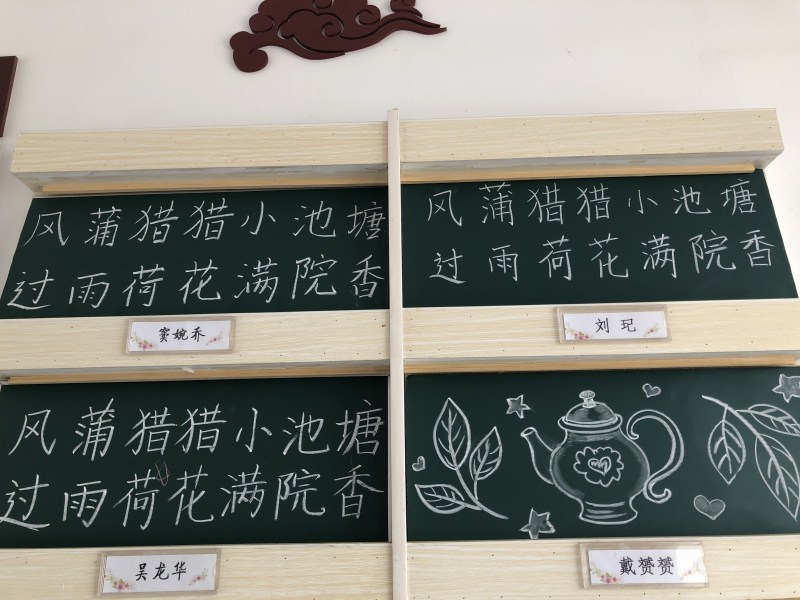 风蒲猎猎小池塘
过雨荷花满院香
窦婉乔
风蒲猎猎小池塘
过雨荷花满院香
刘玘
风蒲猎猎小池塘
过雨荷花满院香
吴龙华
戴赟赟